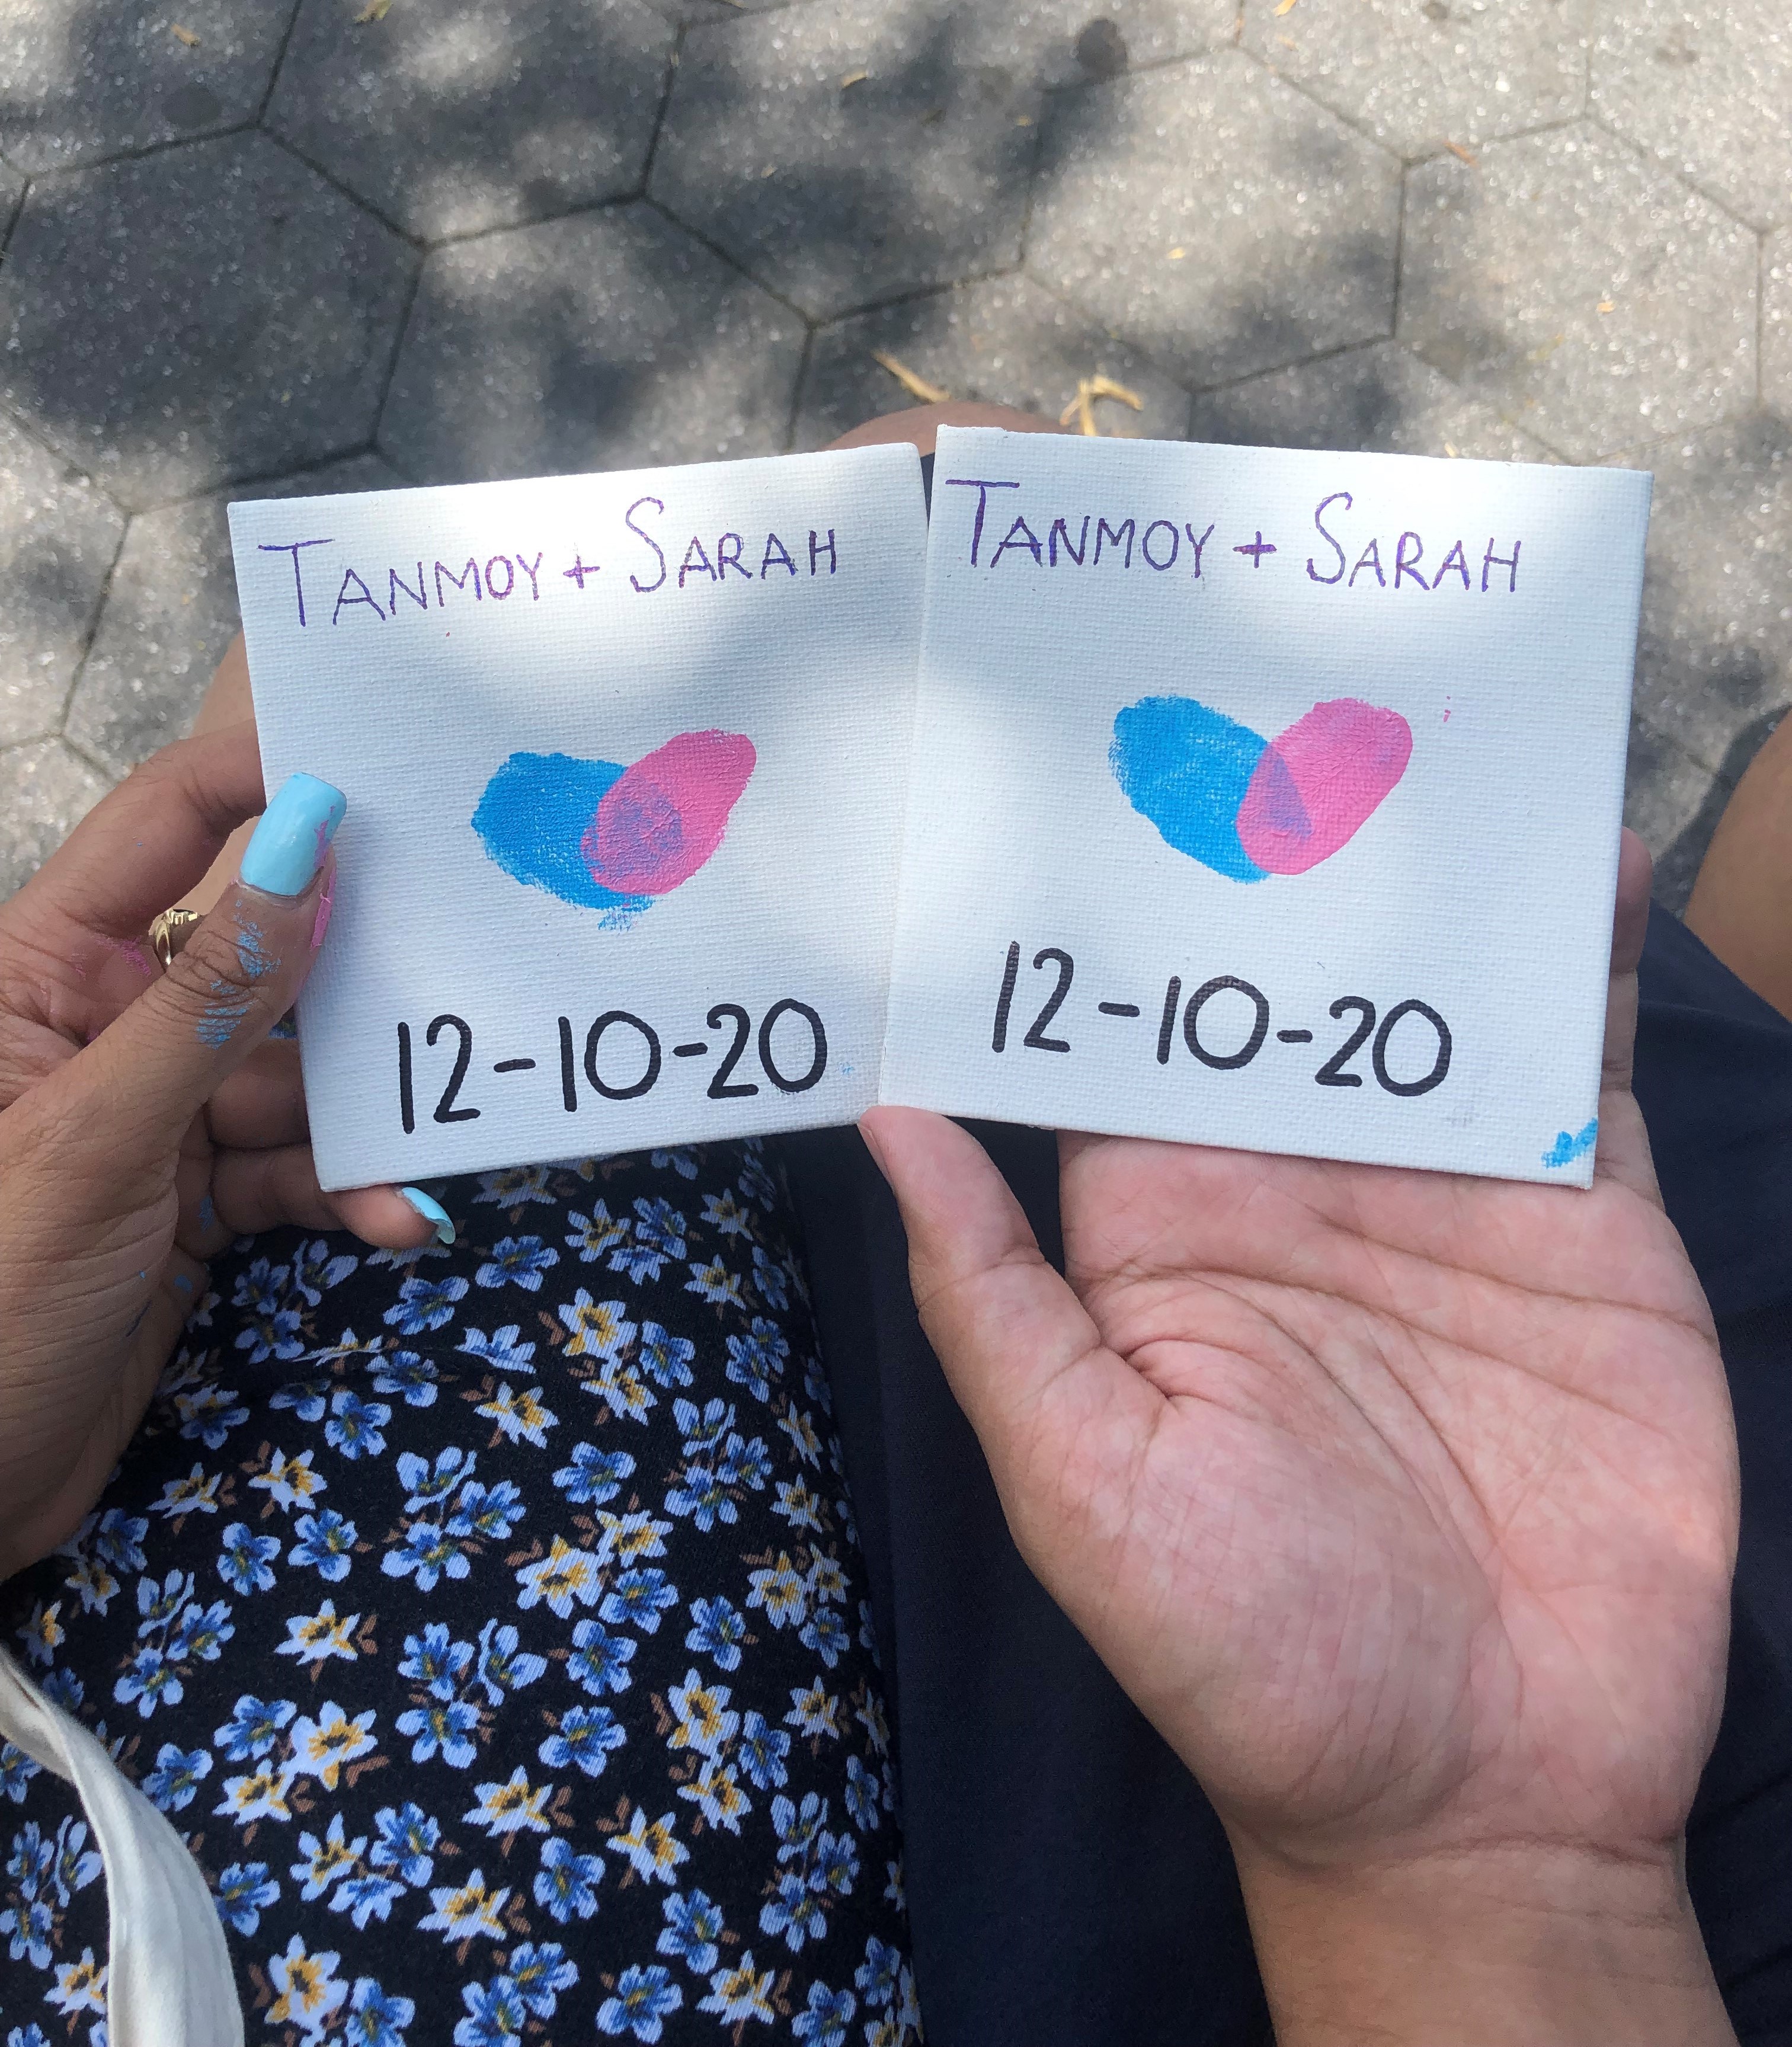 TANMOY + SARAH
12-10-20
TANMOY + SARAH
12-10-20